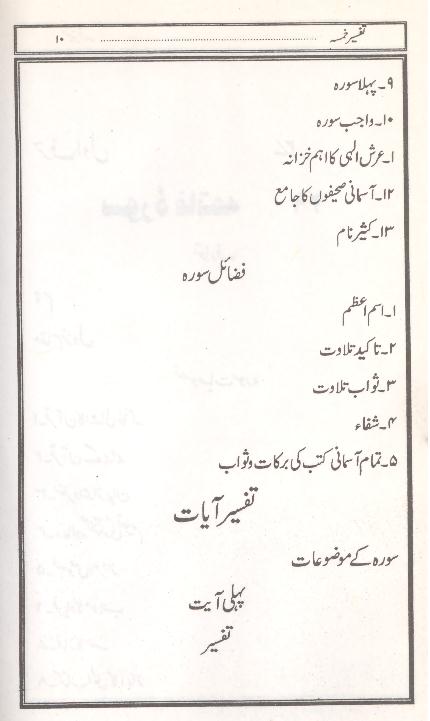 تفسیر خمسہ ۱۰
۹۔ پہلا سورہ
۱۰۔ واجب سورہ
۱۔ عرش الٰہی کا اہم خزانہ
۱۲۔ آسمانی صحیفوں کا جامع
۱۳۔ کثیر نام
فضائل سورہ
۱۔ اسم اعظم
۲۔ تاکید تلاوت
۳۔ ثواب تلاوت
۴۔ شفاء
۵۔ تمام آسمانی کتب کی برکات و ثواب
تفسیر آیات
سورہ کے موضوعات
پہلی آیت
تفسیر